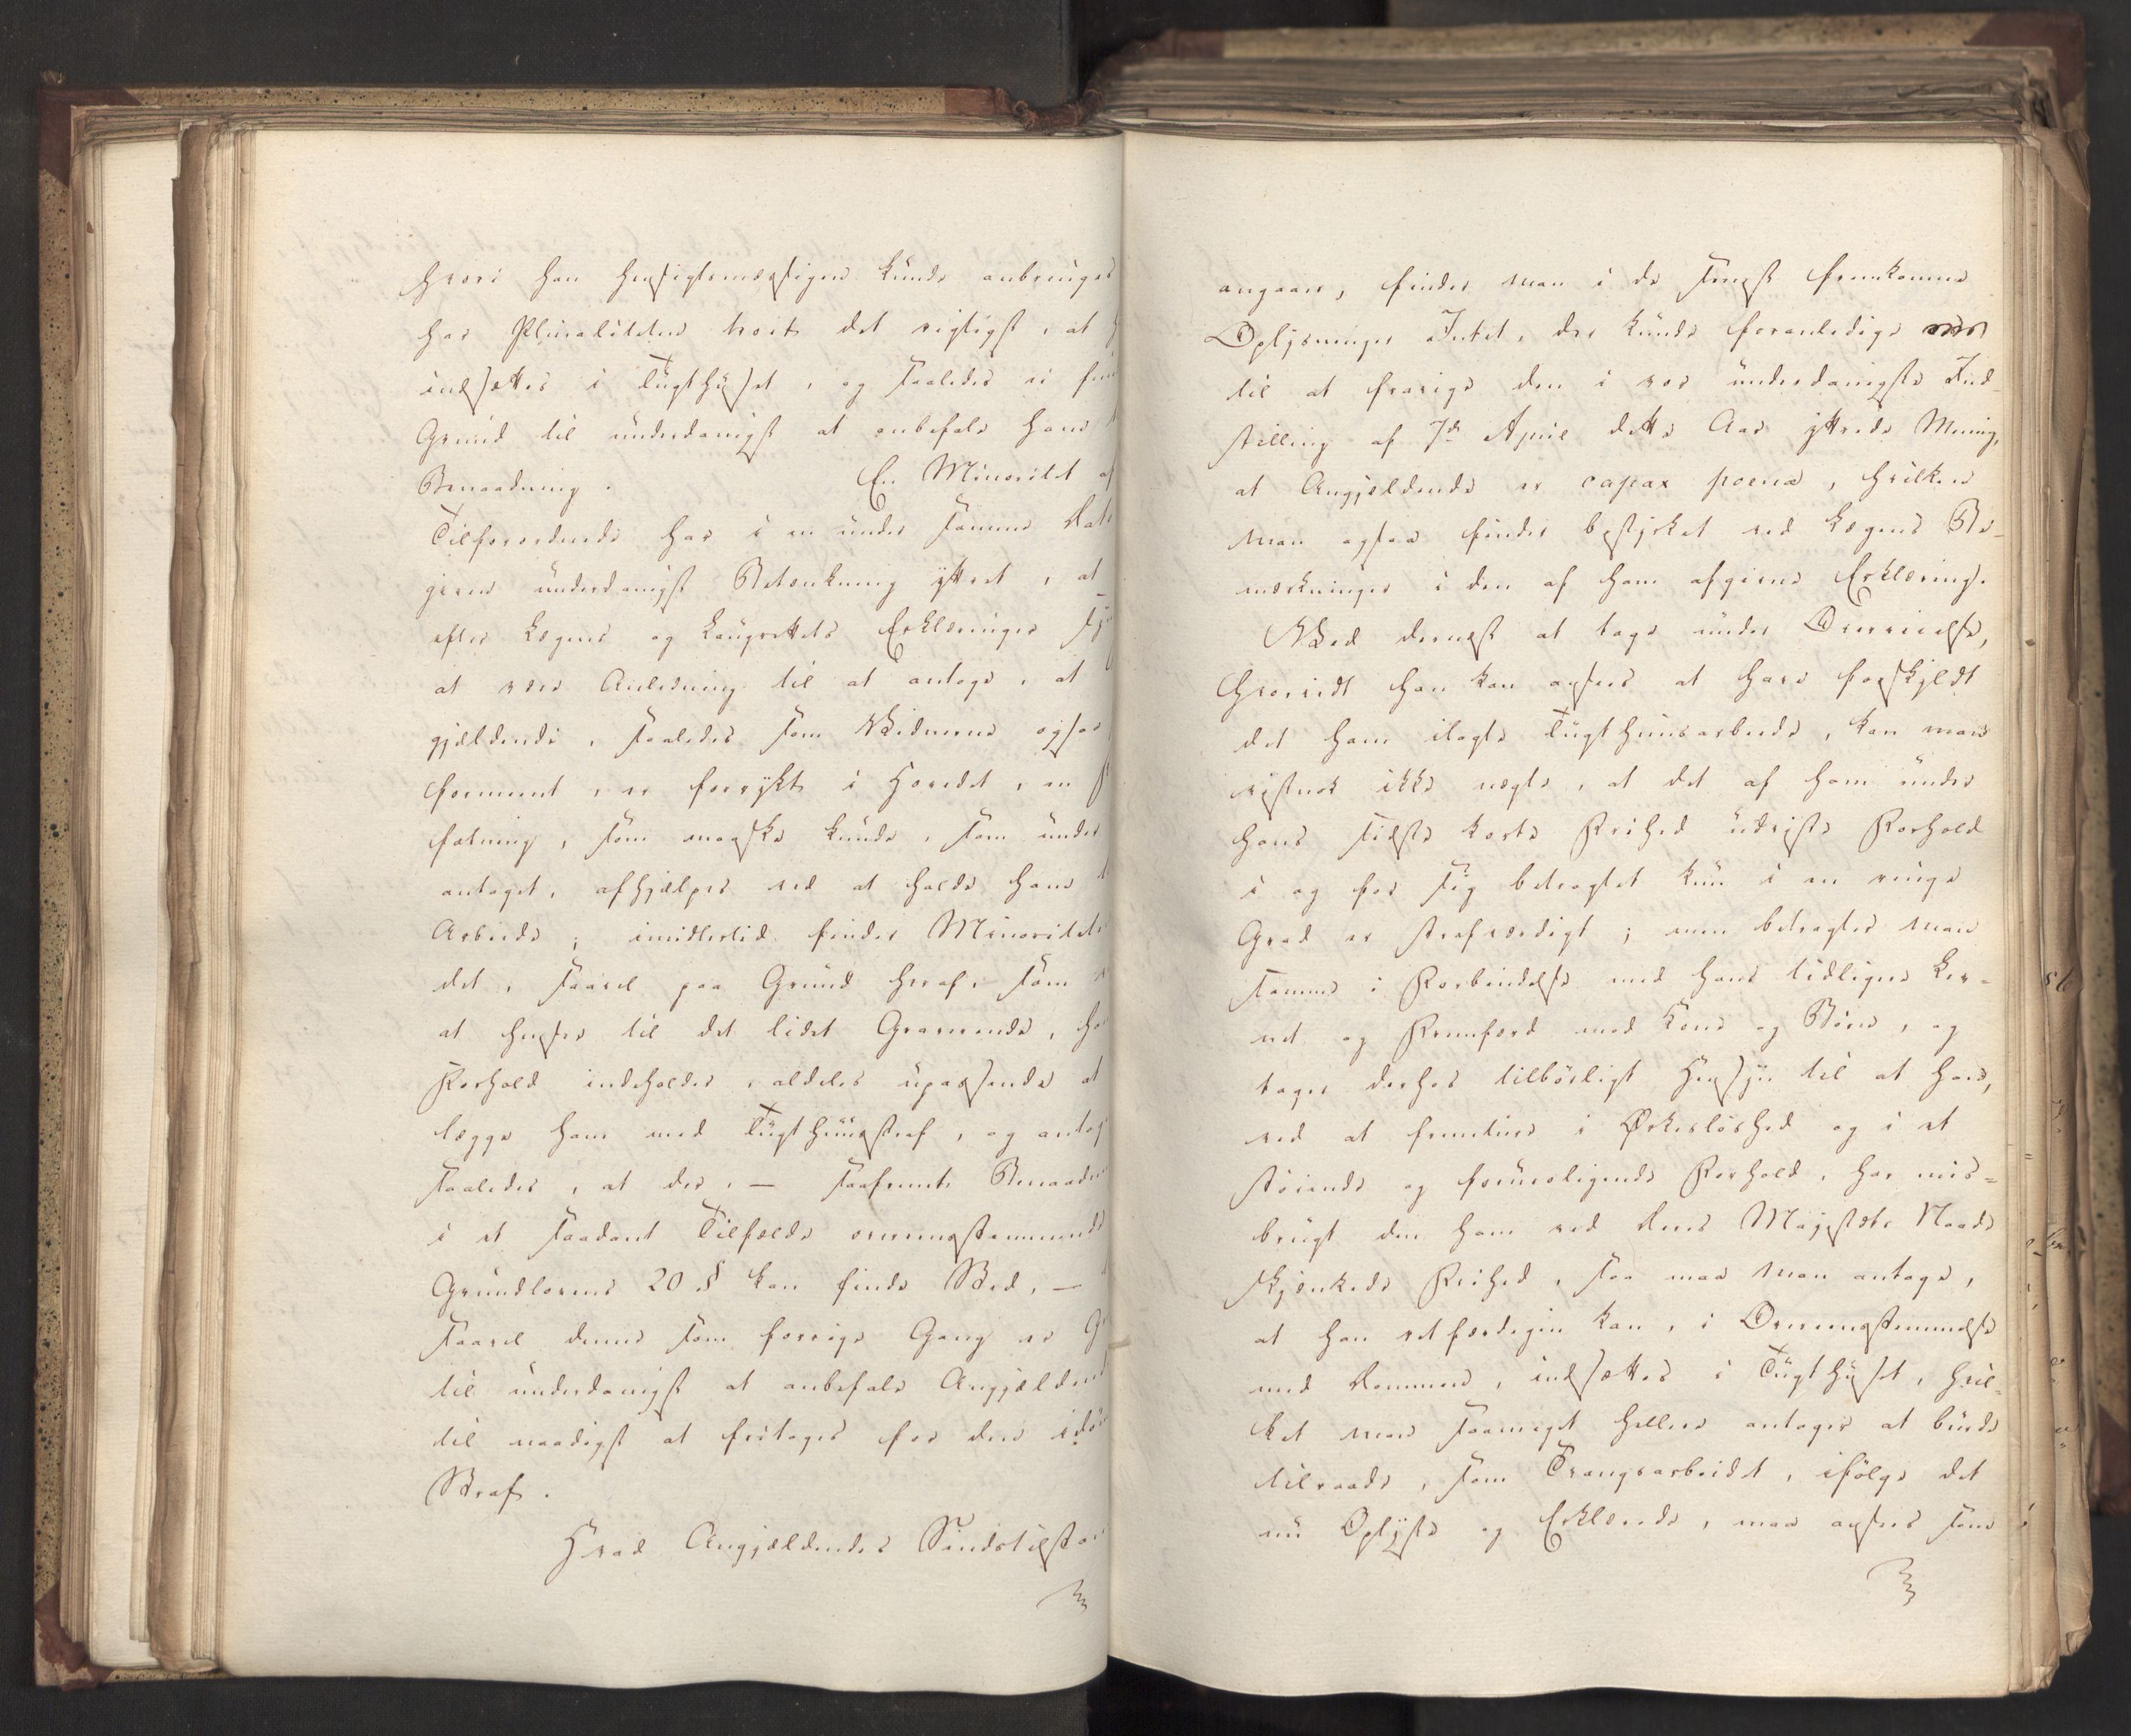 hvori han hensigtsmæssigen kunde anbringes
har Pluraliteten troet det rigtigst, at h
indsættes i Tugthuset, og saaledes ei fun
Grund til underdanigst at anbefale hans
Benaadning. En Minoritet af
Tilforordnede har i en under samme Dato
given underdanigst Betænkning yttret, at
efter Lægens og Laugrettets Erklæringer sy
at være Anledning til at antage, at
gjældende, saaledes som Vidnerne ogsaa
formeent, er forrykt i Hovedet, en F
fatning, som maaske kunde, som under
antaget, afhjælpes ved at holde ham t
Arbeide; imidlertid finder Minoritete
det, saavel paa Grund heraf, som
at hensee til det lidet Graverende, ha
Forhold indeholder, aldeles upassende at
lægge ham med Tugthuusstraf, og antag
saaledes, at der, — saafremt Benaadn
i et saadant Tilfælde overeensstemmende
Grundlovens 20 § kan finde Sted, —
saavel denne som forrige Gang er G
til underdanigst at anbefale Angjældend
til naadigst at fritages for den idøm
Straf.
Hvad Angjældendes Sindstilstan
angaaer, finder man i de senest fremkomne
Oplysninger Intet, der kunde foranledige os
til at fravige den i vor underdanigste Ind-
stilling af 7de April dette Aar yttrede Mening,
at Angjældende er capax poenæ, hvilken
man ogsaa finder bestyrket ved Lægens Be-
mærkninger i den af ham afgivne Erklæring.
Ved dernæst at tage under Overveielse,
hvorvidt han kan ansees at have forskyldt
det ham ilagte Tugthuusarbeide, kan man
vistnok ikke nægte, at det af ham under
hans sidste korte Frihed udviste Forhold
i og for sig betragtet kun i en ringe
Grad er strafværdigt; men betragter man
samme i Forbindelse med hans tidligere Lev-
net og Fremfærd mod Kone og Børn, og
tager derhos tilbørligt Hensyn til at han,
ved at fremture i Ørkesløshed og i et
støiende og foruroligende Forhold, har mis-
brugt den ham ved Deres Majestæts Naade
skjænkede Frihed, saa maa man antage,
at han retfærdigen kan, i Overeensstemmelse
med Dommen, indsættes i Tugthuset, hvil-
ket man saameget hellere antager at burde
tilraade, som Tvangsarbeidet, ifølge det
nu Oplyste og Erklærede, maa ansees som